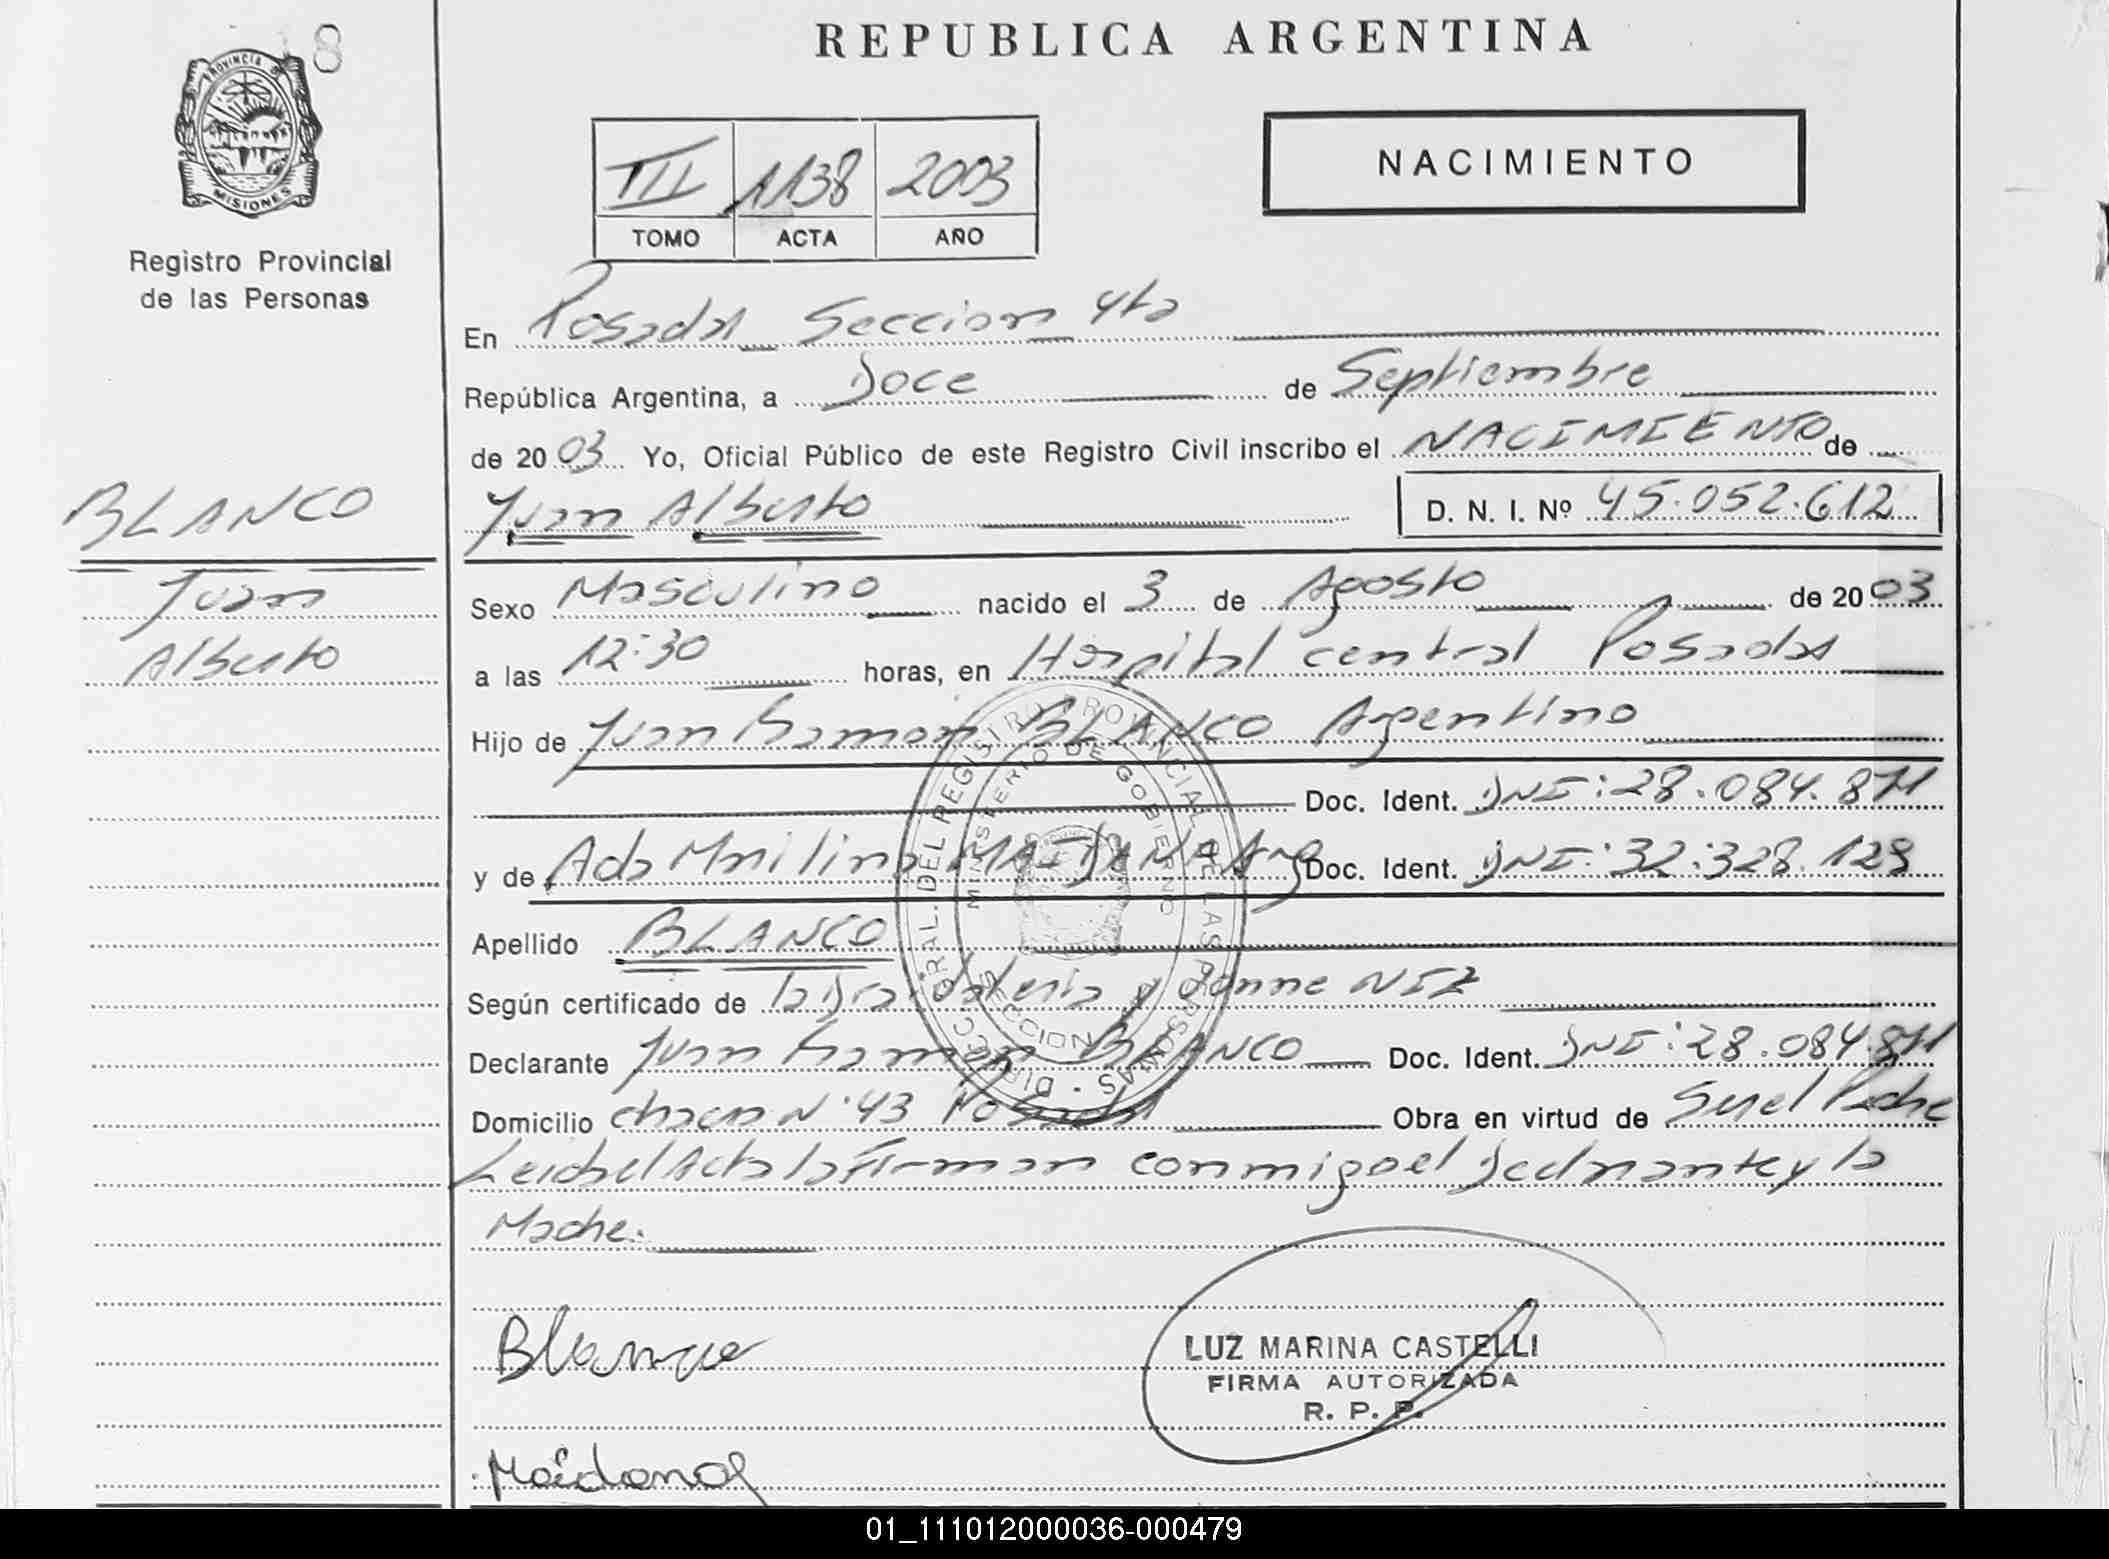 18
REPUBLICA ARGENTINA
PROVINCIA D
MISIONES
Registro Provincial
de las Personas
III 1138 2003
TOMO ACTA AÑO
NACIMIENTO
En Posadas Seccion 4ta
República Argentina, a Doce de Septiembre
de 2003 Yo, Oficial Público de este Registro Civil inscribo el NACIMIENTO de
Juan Alberto D. N. I. Nº 45.052.612
BLANCO
Juan
Alberto
Sexo Masculino nacido el 3 de Agosto de 2003
a las 12:30 horas, en Hospital central Posadas
Hijo de Juan Ramon BLANCO Argentino
Doc. Ident. DNI: 28.084.871
y de Ada MAIDANA Arg Doc. Ident. DNI: 32.328.129
Apellido BLANCO
Según certificado de la Dra. Valeria NIZ
Declarante Juan Ramon BLANCO Doc. Ident. DNI: 28.084.871
Domicilio chacra N° 43 Posadas Obra en virtud de Ser el Padre
Leida el Acta la Firman conmigo el Declarante y la
Madre.
DIRECC. GRAL. DEL REGISTRO PROVINCIAL DE LAS PERSONAS
MINISTERIO DE GOBIERNO
SECCION
Blanco
LUZ MARINA CASTELLI
FIRMA AUTORIZADA
R. P. P.
Maidana
01_111012000036-000479